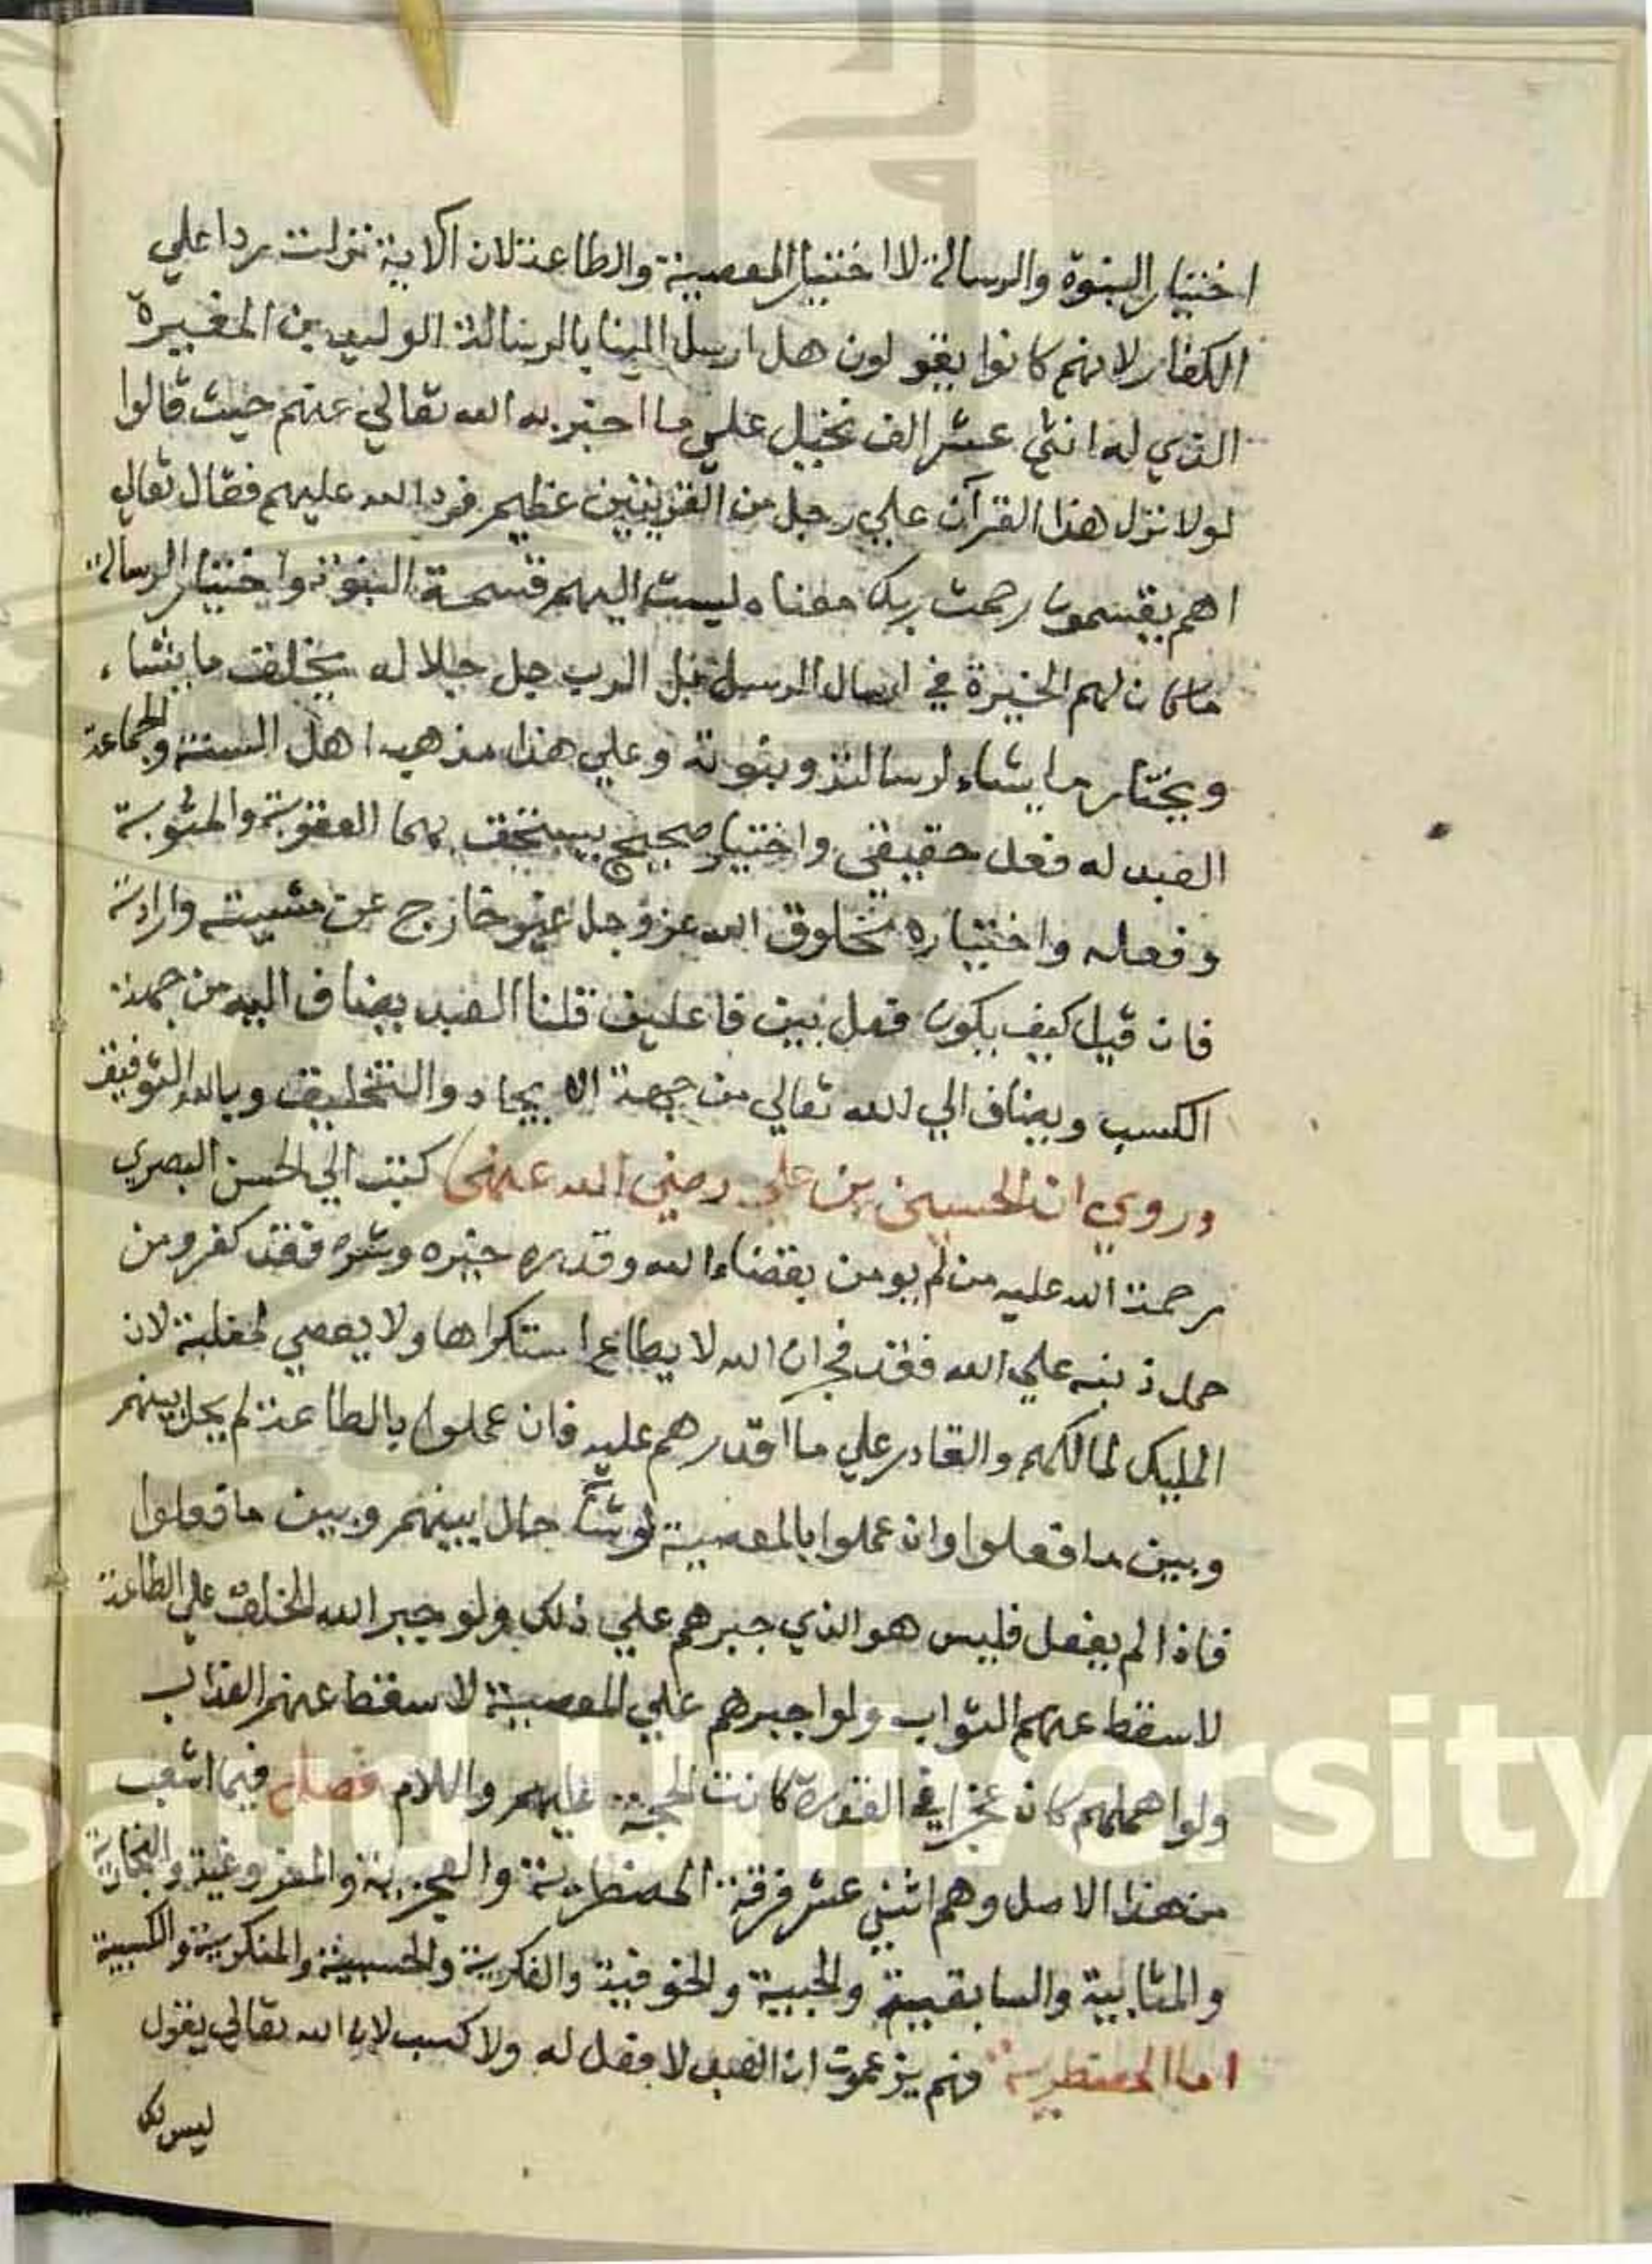 اختيار النبوة والرسالة لا اختيار المعصية والطاعة لان الاية نزلت ردا علي
الكفار لانهم كانوا يقولون هل ارسل الينا بالرسالة الوليد بن المغيرة
الذي له اثني عشر الف نخيل علي ما اخبر به الله تعالي عنهم حيث قالوا
لولا نزل هذا القرآن علي رجل من القريتين عظيم فرد الله عليهم فقال تعالي
اهم يقسمون رحمت ربك معناه ليست اليهم قسمة النبوة واختيار الرسالة
ما كان لهم الخيرة في ارسال الرسل قبل الرب جل جلاله يخلق ما يشاء
ويختار ما يشاء لرسالته ونبوته وعلي هذا مذهب اهل السنة والجماعة
العبد له فعل حقيقي واختيار صحيح يستحق بهما العقوبة والمثوبة
وفعله واختياره مخلوق الله عز وجل غير خارج عن مشيته وارادته
فان قيل كيف يكون فعل بين فاعلين قلنا العبد يضاف اليه من جهة
الكسب ويضاف الي الله تعالي من جهة الايجاد والتخليق وبالله التوفيق
وروي ان الحسين بن علي رضي الله عنهما كتب الي الحسن البصري
رحمة الله عليه من لم يومن بقضاء الله وقدره خيره وشره فقد كفر ومن
حمل ذنبه علي الله فقد فجر ان الله لا يطاع استكراها ولا يعصي لغلبة لان
المليك لمالكهم والقادر علي ما اقدرهم عليه فان عملوا بالطاعة لم يحل بينهم
وبين ما فعلوا وان عملوا بالمعصية لو شاء حال بينهم وبين ما فعلوا
فاذا لم يفعل فليس هو الذي جبرهم علي ذلك ولو جبر الله الخلق علي الطاعة
لاسقط عنهم الثواب ولو اجبرهم علي المعصية لاسقط عنهم العذاب
ولو اهملهم كان عجزا في القدرة كانت الحجة عليهم والسلام فصل فيما اشعب
من هذا الاصل وهم اثني عشر فرقة المضطرية والعجزية والمفروغية والنجارية
والمتابية والسابقيية والحبية والخوفية والفكرية والحسبية والمنكرية والكسبية
اما المضطرية فهم يزعمون ان العبد لا فعل له ولا كسب لان الله تعالي يقول
ليس لك
Saud University